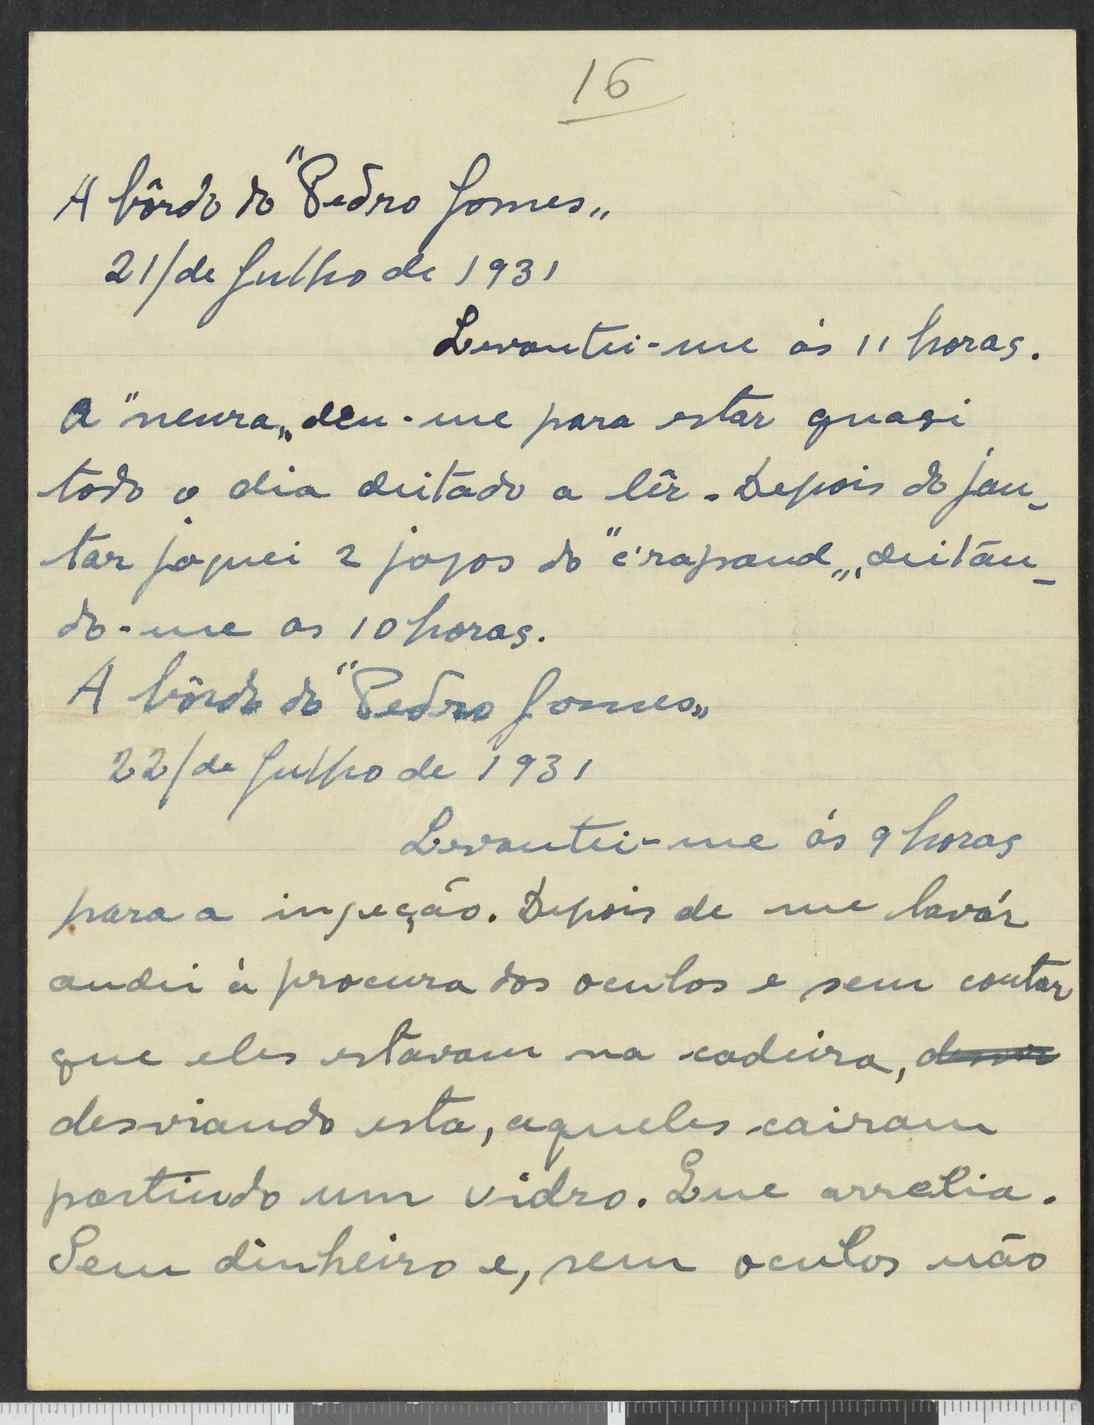 16
A bôrdo do "Pedro Gomes„
21/de Julho de 1931
Levantei-me ás 11 horas.
A "neura„ deu-me para estar quasi
todo o dia deitado a lêr. Depois do jan-
tar joguei 2 jogos do "crapaud„, deitan-
do-me as 10 horas.
A bôrdo do "Pedro Gomes„
22/de Julho de 1931
Levantei-me ás 9 horas
para a injecção. Depois de me lavár
andei à procura dos oculos e sem contar
que eles estavam na cadeira,
desviando esta, aqueles cairam
partindo um vidro. Que arrelia.
Sem dinheiro e, sem oculos não